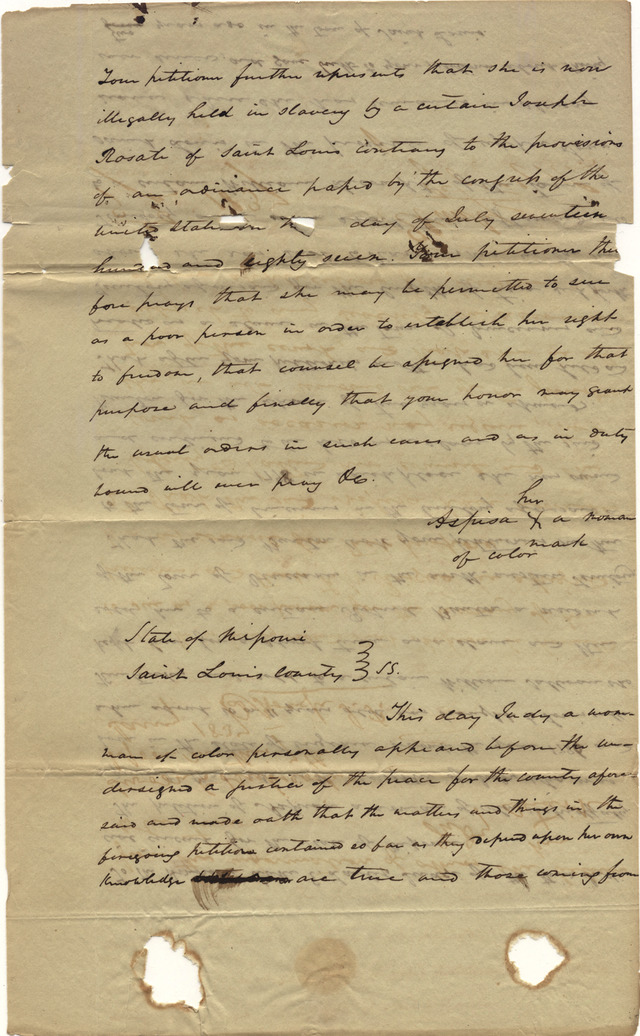 Your petitioner further represents that she is now
illegally held in slavery by a certain Joseph
Rosati of Saint Louis contrary to the provisions
of an ordinance passed by the congress of the
united states on the day of July seventeen
hundred and eighty seven. Your petitioner there
fore prays that she may be permitted to sue
as a poor person in order to establish her right
to freedom, that counsel be assigned her for that
purpose and finally that your honor may grant
the usual orders in such cases and as in duty
bound will ever pray &c.
her
Aspisa X a woman
mark
of color
State of Missouri
Saint Louis County } SS.
This day Judy a wom
man of color personally appeared before the un-
dersigned a justice of the peace for the county afore-
said and made oath that the matters and things in the
foregoing petition contained so far as they depend upon her own
knowledge are true and those coming from